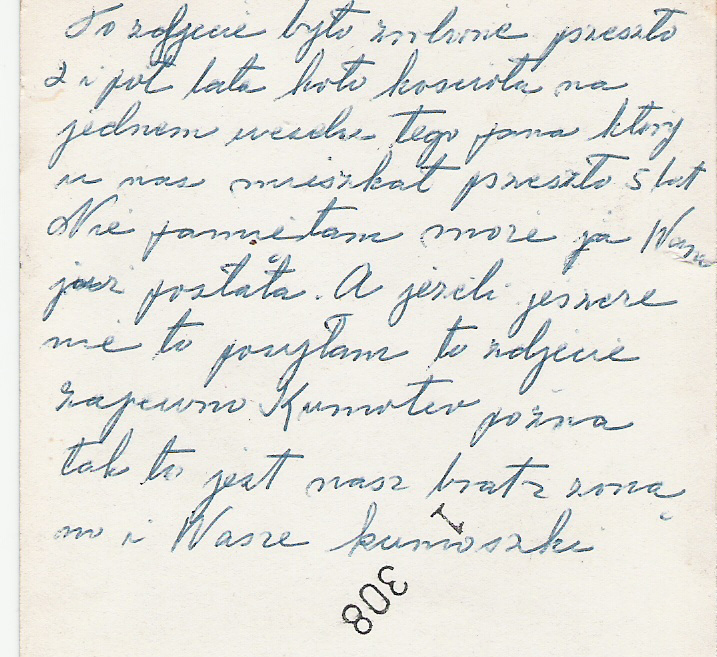 To zdjęcie było zrobione przeszło
2 i pół lata koło koscioła na
jednem weselu tego pana ktory
u nas mieszkał przeszło 5 lat
Nie pamietam może ja Wam
już posłała. A jeżeli jeszcze
nie to posyłam to zdjecie
zapewno Kumotrw pozna
tak to jest nasz brat z zoną
no i Wasze kumoszki
1
308